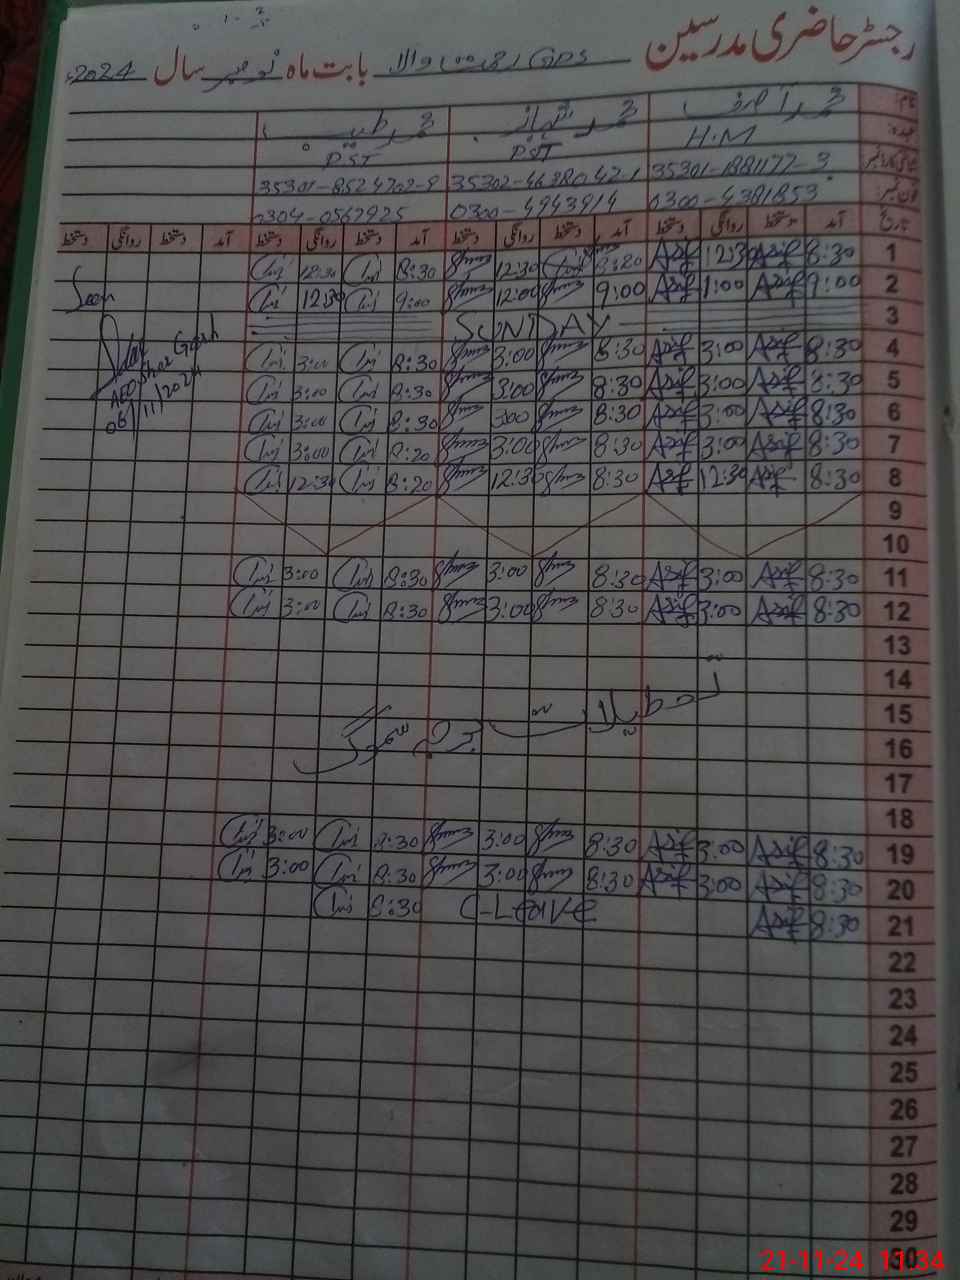 رجسٹر حاضری مدرسین GPS والا بابت ماہ نومبر سال 2024
نام: محمد آصف محمد شہباز محمد طیب
عہدہ: H.M PST PST
35301-1881177-3 35302-4638042-1 35301-8524702-9
فون نمبر: 0300-4381853 0300-4943914 0304-0567925
تاریخ آمد دستخط روانگی دستخط آمد دستخط روانگی دستخط آمد دستخط روانگی دستخط آمد دستخط روانگی دستخط
1 8:30 Asif 12:30 Asif 8:30 12:30 8:30 12:30
2 9:00 Asif 1:00 Asif 9:00 12:00 9:00 12:30
Seen
3 SUNDAY
4 8:30 Asif 3:00 Asif 8:30 3:00 8:30 3:00
5 8:30 Asif 3:00 Asif 8:30 3:00 8:30 3:00
6 8:30 Asif 3:00 Asif 8:30 3:00 8:30 3:00
7 8:30 Asif 3:00 Asif 8:30 3:00 8:30 3:00
8 8:30 Asif 12:30 Asif 8:30 12:30 8:30 12:30
AEO Shar Garh
06/11/2024
9
10
11 8:30 Asif 3:00 Asif 8:30 3:00 8:30 3:00
12 8:30 Asif 3:00 Asif 8:30 3:00 8:30 3:00
13
14
15
تعطیلات سموگ
16
17
18
19 8:30 Asif 3:00 Asif 8:30 3:00 8:30 3:00
20 8:30 Asif 3:00 Asif 8:30 3:00 8:30 3:00
21 8:30 Asif C-Leave 8:30
22
23
24
25
26
27
28
29
30
21-11-24 11:34